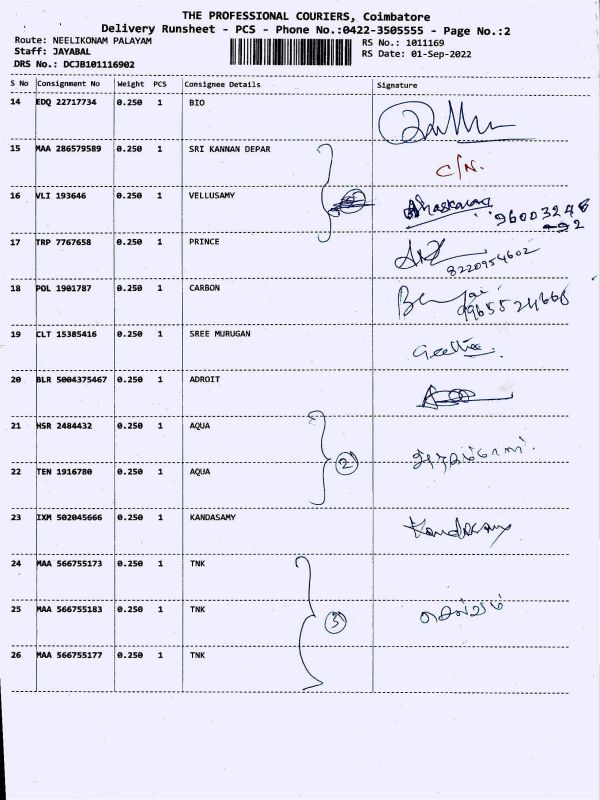 THE PROFESSIONAL COURIERS, Coimbatore
Delivery Runsheet - PCS - Phone No.:0422-3505555 - Page No.:2
Route: NEELIKONAM PALAYAM
RS No.: 1011169
Staff: JAYABAL
RS Date: 01-Sep-2022
DRS No.: DCJB101116902
S No Consignment No Weight PCS Consignee Details Signature
14 EDQ 22717734 0.250 1 BIO
15 MAA 286579589 0.250 1 SRI KANNAN DEPAR C/N.
16 VLI 193646 0.250 1 VELLUSAMY
17 TRP 7767658 0.250 1 PRINCE 8220954602
18 POL 1901787 0.250 1 CARBON
19 CLT 15385416 0.250 1 SREE MURUGAN Geetha
20 BLR 5004375467 0.250 1 ADROIT
21 HSR 2484432 0.250 1 AQUA
2
22 TEN 1916780 0.250 1 AQUA
23 IXM 502045666 0.250 1 KANDASAMY Kandasamy
24 MAA 566755173 0.250 1 TNK
25 MAA 566755183 0.250 1 TNK 3
26 MAA 566755177 0.250 1 TNK